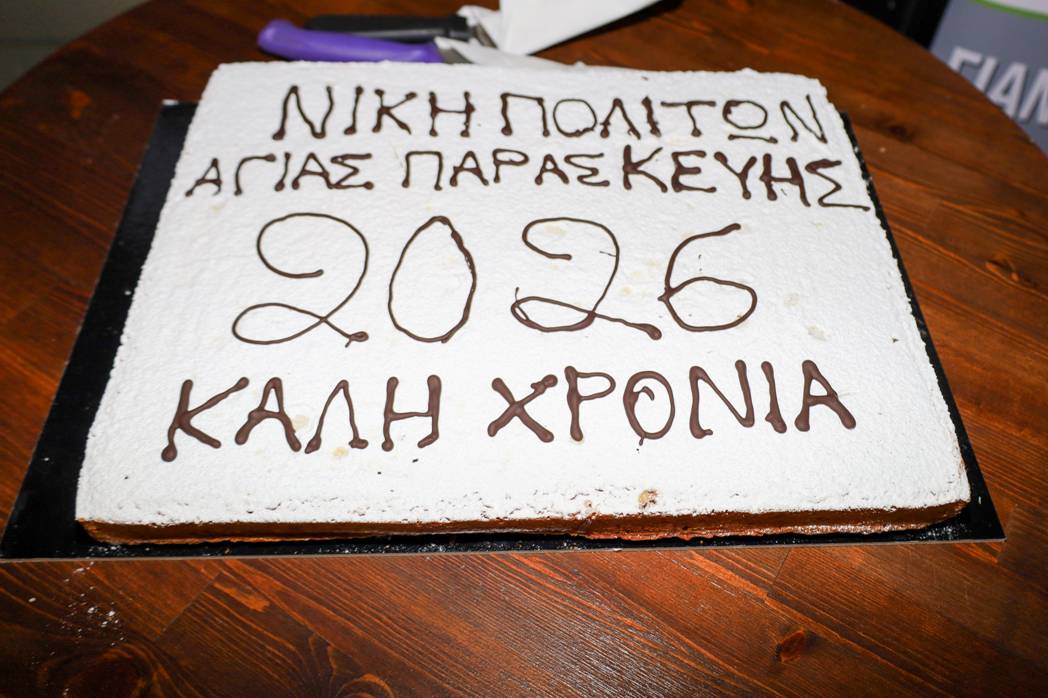 ΝΙΚΗ ΠΟΛΙΤΩΝ
ΑΓΙΑΣ ΠΑΡΑΣΚΕΥΗΣ
2026
ΚΑΛΗ ΧΡΟΝΙΑ